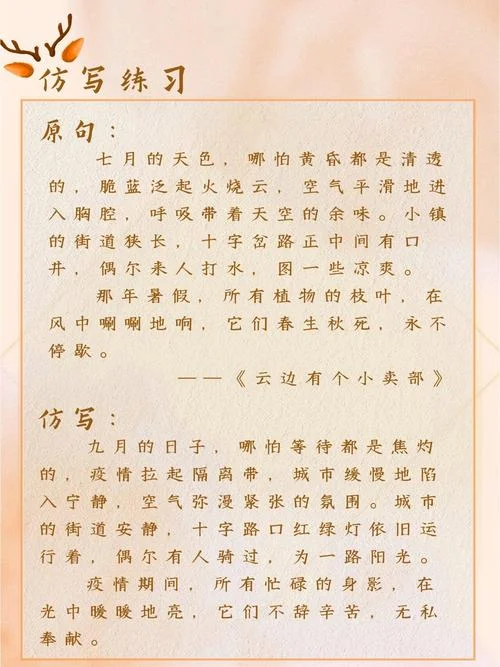 仿写练习
原句：
七月的天色，哪怕黄昏都是清透
的，脆蓝泛起火烧云，空气平滑地进
入胸腔，呼吸带着天空的余味。小镇
的街道狭长，十字岔路正中间有口
井，偶尔来人打水，图一些凉爽。
那年暑假，所有植物的枝叶，在
风中唰唰地响，它们春生秋死，永不
停歇。
——《云边有个小卖部》
仿写：
九月的日子，哪怕等待都是焦灼
的，疫情拉起隔离带，城市缓慢地陷
入宁静，空气弥漫紧张的氛围。城市
的街道安静，十字路口红绿灯依旧运
行着，偶尔有人骑过，为一路阳光。
疫情期间，所有忙碌的身影，在
光中暖暖地亮，它们不辞辛苦，无私
奉献。